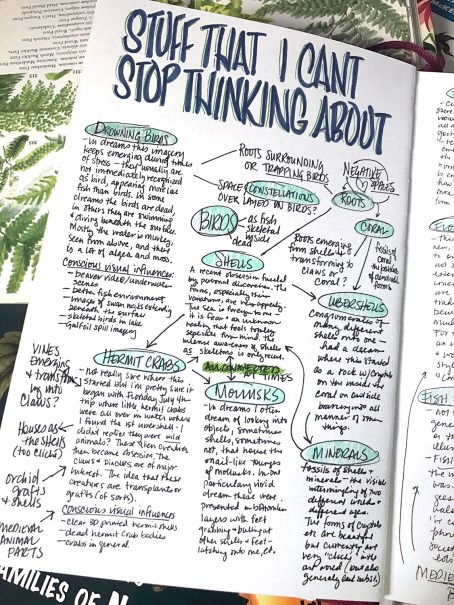 STUFF THAT I CANT
STOP THINKING ABOUT
DROWNING BIRDS
- in dreams this imagery
keeps emerging during times
of stress - they usually are
not immediately recognized
as bird, appearing more like
fish than birds. in some
dreams the birds are dead,
in others they are swimming
+ diving beneath the surface.
Mostly the water is murky,
seen from above, and there
is a lot of algea and moss.
Conscious visual influences:
- beaver video/underwater
scenes
- betta fish environment
- images of swan necks extending
beneath the surface
- skeletal birds in lake
- Gulf oil spill imagery
ROOTS SURROUNDING
OR TRAPPING BIRDS
SPACE/CONSTELLATIONS
OVER LAYED ON BIRDS?
BIRDS
- as fish
- skeletal
- inside
dead
NEGATIVE
SPACES
ROOTS
CORAL
fossils of
coral
SHELLS
A recent obsession fueled
by personal discoveries. The
forms, especially their
variations, are very appealing.
The sea is foreign to me -
it is fear + an unknown
reality that feels totally
separate from mine. The
intense awareness of shells
as skeletons is only recent.
Roots emerging
from shells +
transforming to
claws or
coral?
UBERSHELLS
Conglomerations of
many different
shells onto one -
had a dream
where this started
as a rock w/crystals
on the inside +
coral on outside
all manner of other
things.
HERMIT CRABS
- not really sure where this
started but I'm pretty sure it
began with Friday July 4th
trip where little hermit crabs
were all over in water where
I found the 1st ubershell - I
didnt realize they were wild
animals? These alien species
then became obsession. The
claws + pinchers are of major
interest. The idea that these
creatures are transplants or
grafts (of sorts).
Conscious visual influences
- clear 3D printed hermit shells
- dead hermit crab bodies
- crabs in general
VINES
Emerging
+ transform
ing into
claws?
Houses as
the shells
(too cliche)
orchid
grafts
+ shells
MEDIEVAL
ANIMAL
PARTS
ALL CONNECTED
TIMES
MOLLUSKS
- In dreams I often
dream of looking into
objects, sometimes
shells, sometimes
not, that house the
snail-like tounges
of mollusks. In one
particularly vivid
dream these were
presented in
layers with feet
grabbing + pulling at
other shells + feet -
latching onto me, etc.
MINERALS
fossils of shells +
minerals - the visible
intermingling of two
different worlds +
different ages.
The forms of crystals
etc are beautiful
but currently are
very "cliche" with
the art world (but also
generally lend substs)
FISH
MEDIE
FAMILIES OF N